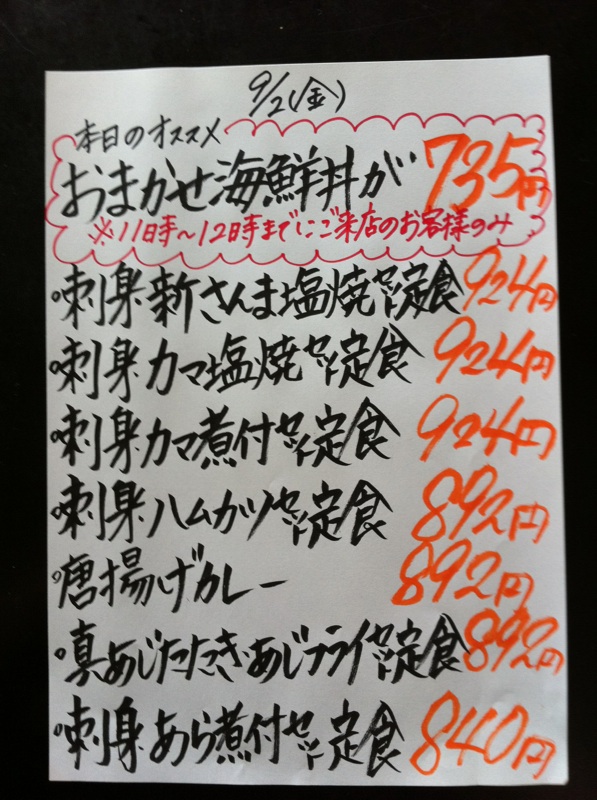 9/2(金)
本日のオススメ
おまかせ海鮮丼が 735円
※11時～12時までにご来店のお客様のみ
○刺身新さんま塩焼セット定食 924円
○刺身カマ塩焼セット定食 924円
○刺身カマ煮付セット定食 924円
○刺身ハムカツセット定食 892円
○唐揚げカレー 892円
○真あじたたきあじフライセット定食 892円
○刺身あら煮付セット定食 840円